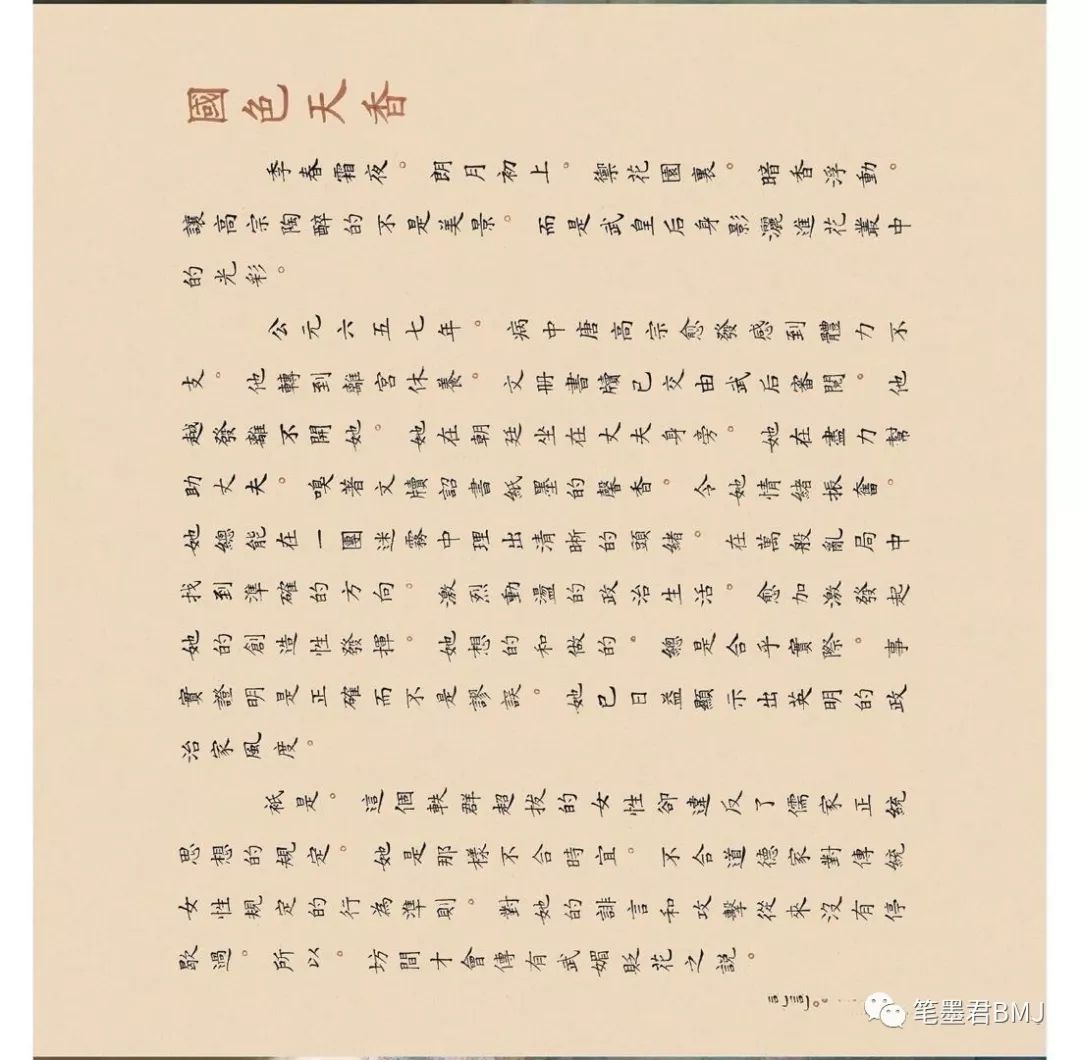 國色天香
季春霜夜。朗月初上。禦花園裏。暗香浮動。
讓高宗陶醉的不是美景。而是武皇后身影灑進花叢中
的光彩。
公元六五七年。病中唐高宗愈發感到體力不
支。他轉到離宮休養。文冊書牘已交由武后審閱。他
越發離不開她。她在朝廷坐在丈夫身旁。她在盡力幫
助丈夫。嗅著文牘詔書紙墨的馨香。令她情緒振奮。
她總能在一團迷霧中理出清晰的頭緒。在萬般亂局中
找到準確的方向。激烈動盪的政治生活。愈加激發起
她的創造性發揮。她想的和做的。總是合乎實際。事
實證明是正確而不是謬誤。她已日益顯示出英明的政
治家風度。
衹是。這個軼群超拔的女性卻違反了儒家正統
思想的規定。她是那樣不合時宜。不合道德家對傳統
女性規定的行為準則。對她的誹言和攻擊從來沒有停
歇過。所以。坊間才會傳有武媚貶花之說。
笔墨君BMJ